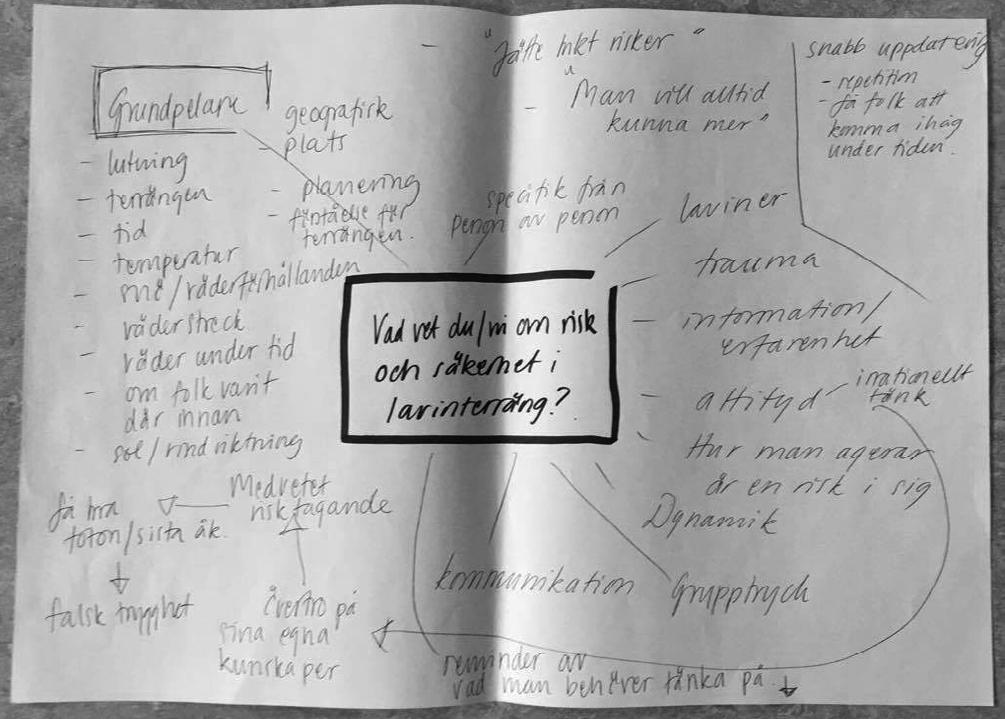 - "Jätte mkt risker"
- "Man vill alltid
kunna mer"
snabb uppdatering
- repetition
- få folk att
komma ihåg
under tiden.
Grundpelare
- lutning
- terrängen
- tid
- temperatur
- snö/väderförhållanden
- väderstreck
- väder under tid
- om folk varit
där innan
- sol/vindriktning
geografisk
- plats
- planering
- förståelse för
terrängen.
specifik från
person av person
laviner
trauma
- information/
erfarenhet
- attityd
irrationellt
tänk
- Hur man agerar
är en risk i sig
Vad vet du/ni om risk
och säkerhet i
lavinterräng?
Dynamik
Grupptryck
kommunikation
reminder av
vad man behöver tänka på.
Medvetet
risktagande
få bra
foton/sista åk.
falsk trygghet
övertro på
sina egna
kunskaper